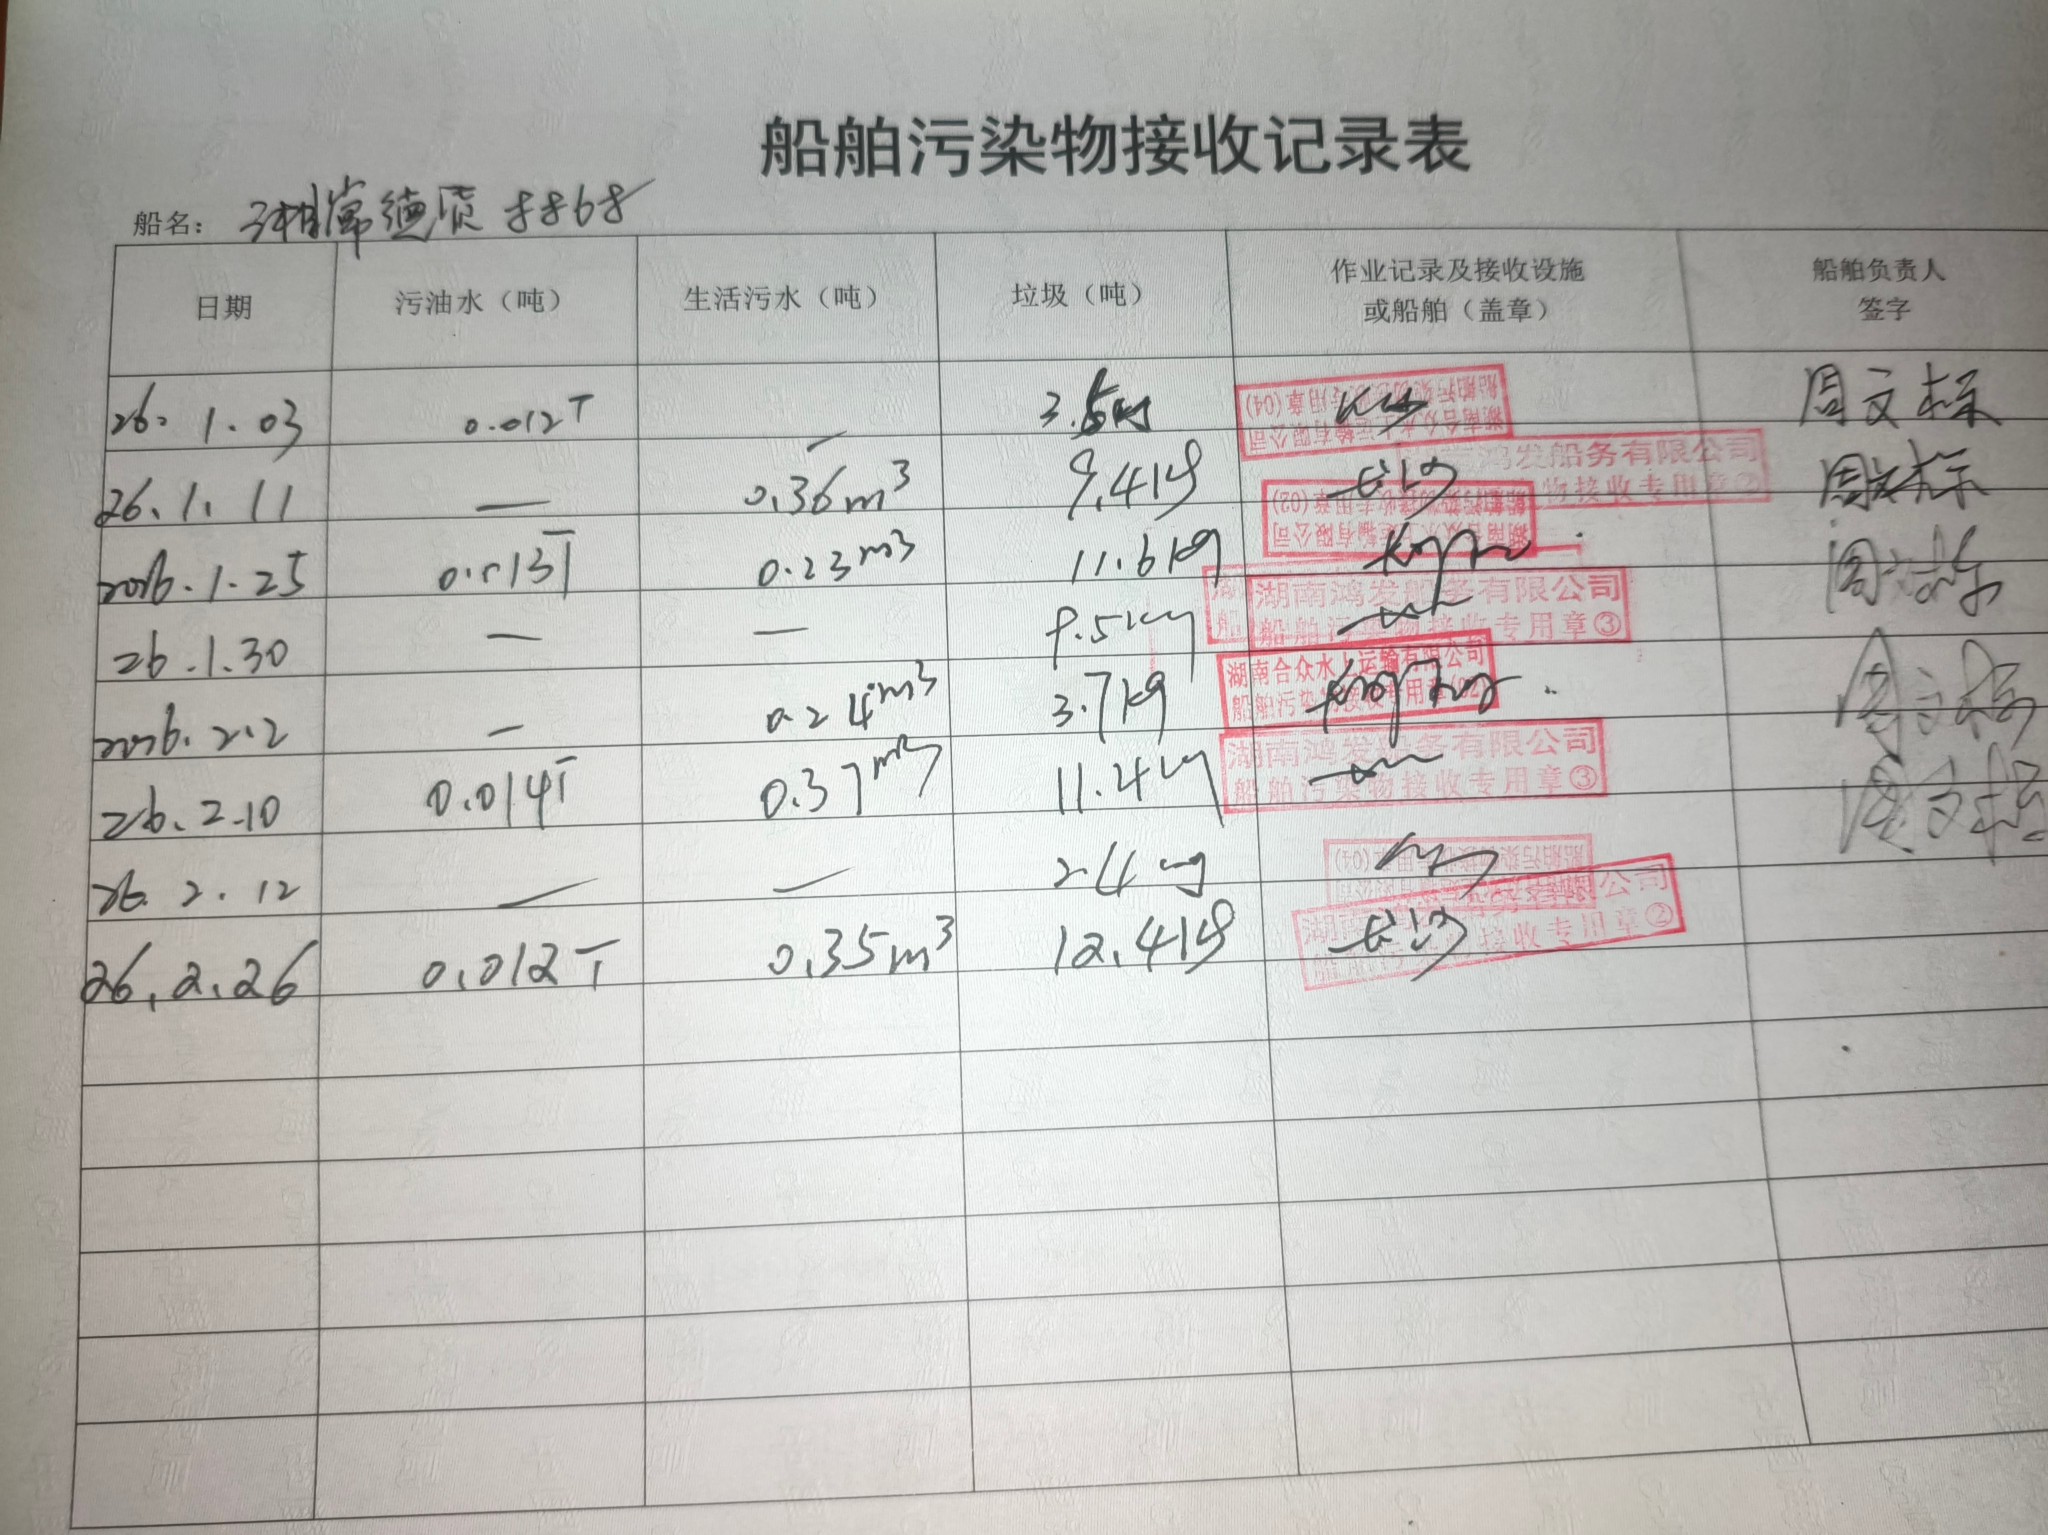 船舶污染物接收记录表
船名： 湘常德质8868
日期 污油水（吨） 生活污水（吨） 垃圾（吨） 作业记录及接收设施或船舶（盖章） 船舶负责人签字
26. 1.03 0.012T — 3.5kg 周文标
26.1.11 — 0.36m³ 9.4kg 长沙 鸿发船务有限公司 物接收专用章② 周文标
2026.1.25 0.013T 0.23m³ 11.6kg 湖南合众水上运输有限公司 船舶污染物接收专用章(02) 周文标
26.1.30 — — 9.5kg 湖南鸿发船务有限公司 船舶污染物接收专用章③ 周文标
2026.2.2 — 0.24m³ 3.7kg 湖南合众水上运输有限公司 船舶污染物接收专用章(02) 周文标
26.2.10 0.014T 0.37m³ 11.4kg 湖南鸿发船务有限公司 船舶污染物接收专用章③
26.2.12 — — 2.4kg
26.2.26 0.012T 0.35m³ 12.4kg 长沙 接收专用章②